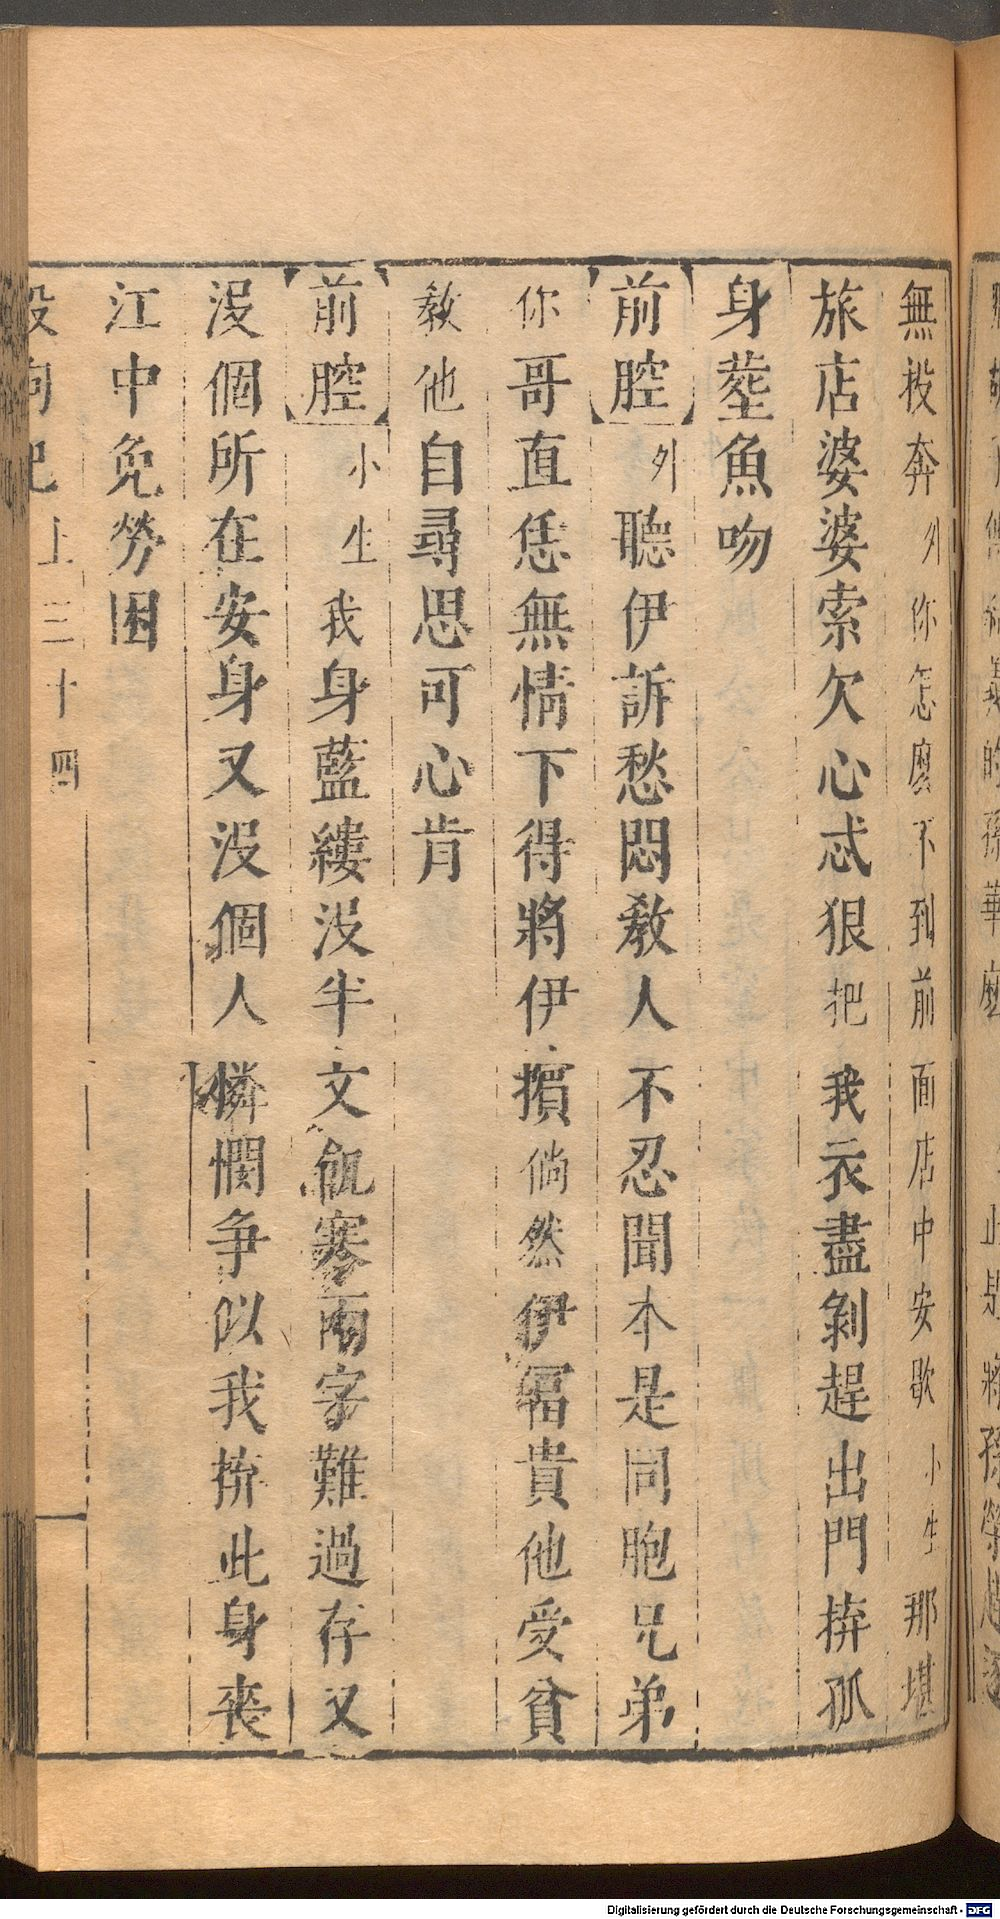 無投奔外你怎麽不到前面店中安歇小生那堪
旅店婆婆索欠心忒狠把我衣盡剝趕出門拚孤
身塟魚吻
前腔外聽伊訴愁悶敎人不忍聞本是同胞兄弟
你哥直恁無情下得將伊擯倘然伊冨貴他受貧
敎他自尋思可心肯
前腔小生我身藍縷没半文飢寒兩字難過存又
没個所在安身又没個人憐憫爭似我拚此身喪
江中免勞困
殺狗記上三十四
Digitalisierung gefördert durch die Deutsche Forschungsgemeinschaft - DFG